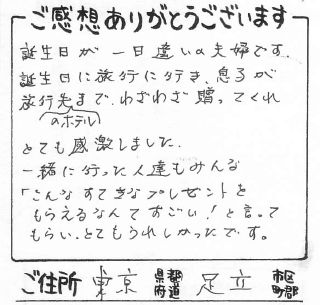 ご感想ありがとうございます
誕生日が一日違いの夫婦です。
誕生日に旅行に行き、息子が
旅行先まで、わざわざ贈ってくれ
のホテル
とても感激しました。
一緒に行った人達もみんな
「こんなすてきなプレゼントを
もらえるなんてすごい!と言って
もらい、とてもうれしかったです。
ご住所 東京 都道府県 足立 市区町郡